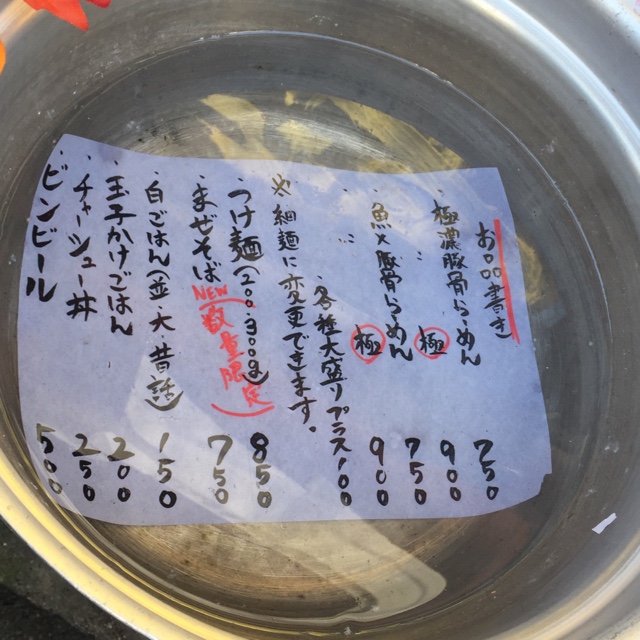 お品書き
・極濃豚骨らーめん 750
極 900
・魚×豚骨らーめん 750
極 900
各種大盛りプラス100
※細麺に変更できます。
・つけ麺(200.300g) 850
・まぜそば NEW 数量限定 750
・白ごはん(並・大・昔話) 150
・玉子かけごはん 200
・チャーシュー丼 250
・ビンビール 500